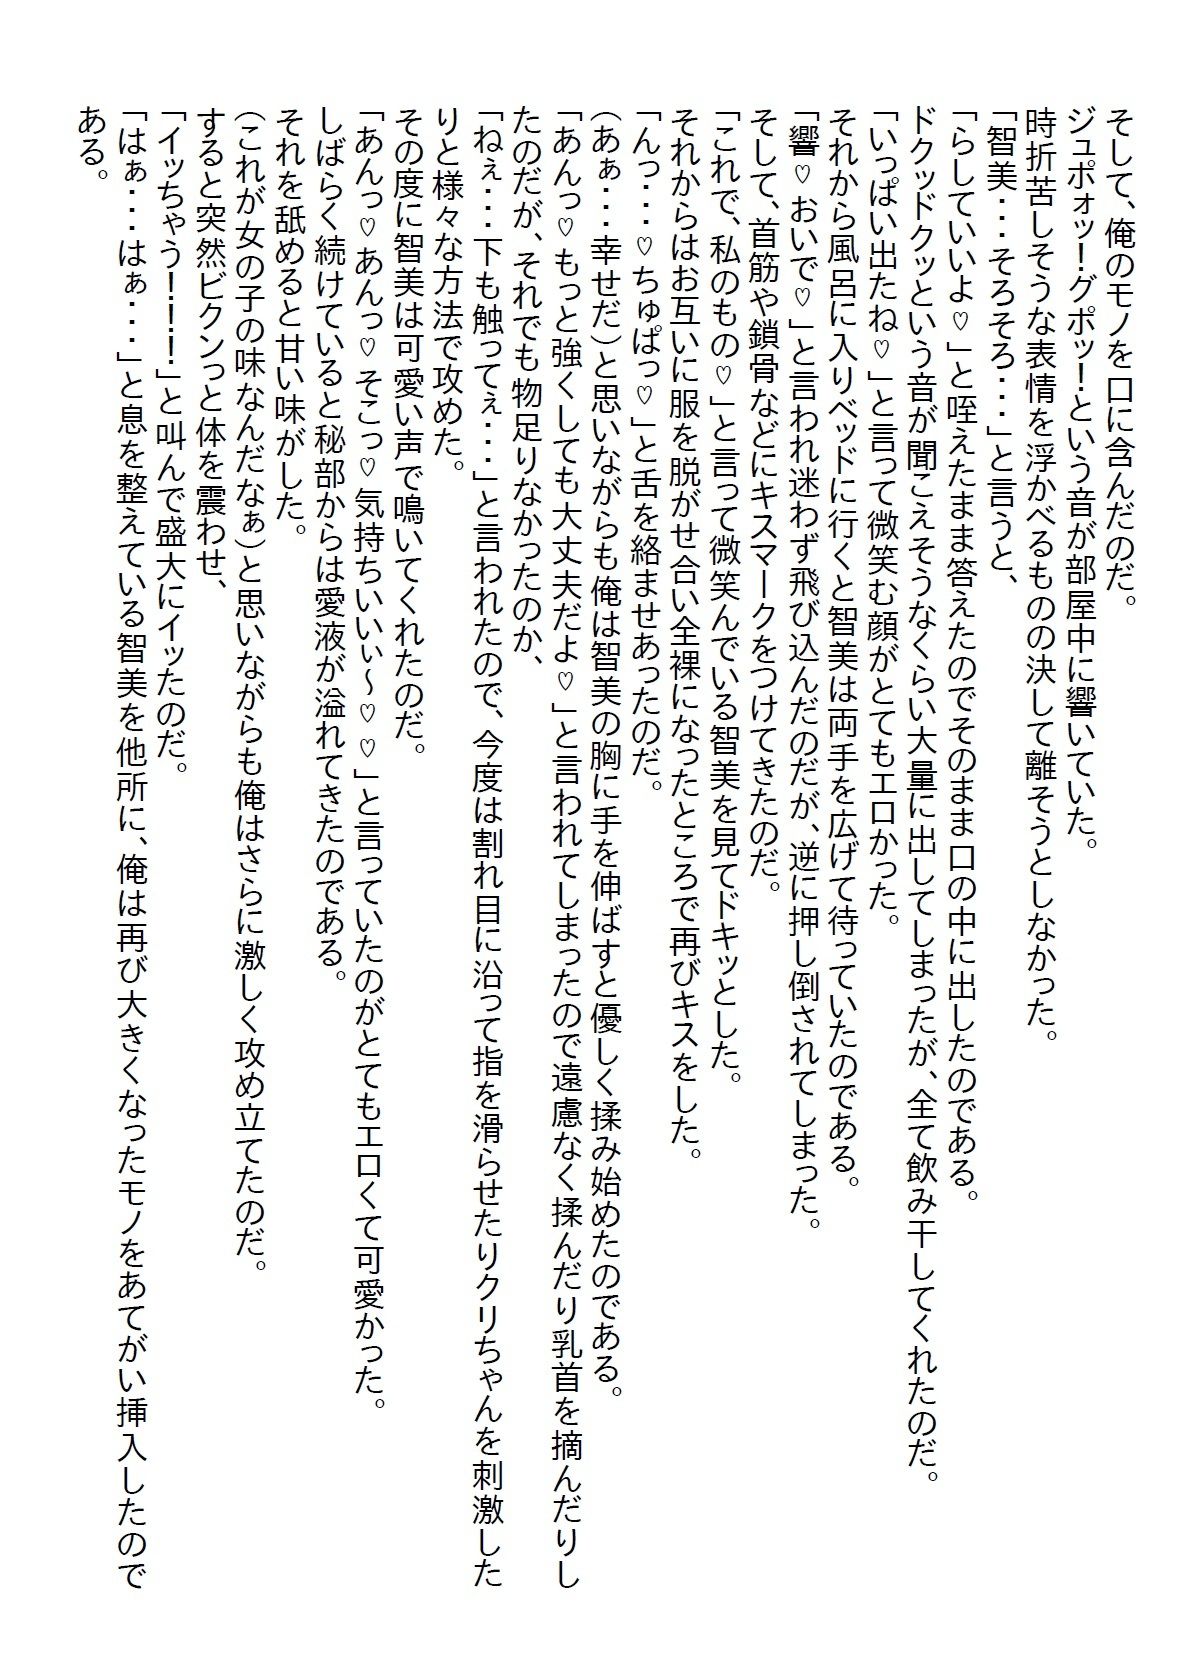 そして、俺のモノを口に含んだのだ。
ジュポォッ！グポッ！という音が部屋中に響いていた。
時折苦しそうな表情を浮かべるものの決して離そうとしなかった。
「智美・・・そろそろ・・・」と言うと、
「らしていいよ♡」と咥えたまま答えたのでそのまま口の中に出したのである。
ドクッドクッという音が聞こえそうなくらい大量に出してしまったが、全て飲み干してくれたのだ。
「いっぱい出たね♡」と言って微笑む顔がとてもエロかった。
それから風呂に入りベッドに行くと智美は両手を広げて待っていたのである。
「響♡おいで♡」と言われ迷わず飛び込んだのだが、逆に押し倒されてしまった。
そして、首筋や鎖骨などにキスマークをつけてきたのだ。
「これで、私のもの♡」と言って微笑んでいる智美を見てドキッとした。
それからはお互いに服を脱がせ合い全裸になったところで再びキスをした。
「んっ・・・♡ちゅぱっ♡」と舌を絡ませあったのだ。
（あぁ・・・幸せだ）と思いながらも俺は智美の胸に手を伸ばすと優しく揉み始めたのである。
「あんっ♡もっと強くしても大丈夫だよ♡」と言われてしまったので遠慮なく揉んだり乳首を摘んだりし
たのだが、それでも物足りなかったのか、
「ねぇ・・・下も触ってぇ・・・」と言われたので、今度は割れ目に沿って指を滑らせたりクリちゃんを刺激した
りと様々な方法で攻めた。
その度に智美は可愛い声で鳴いてくれたのだ。
「あんっ♡あんっ♡そこっ♡気持ちいいぃ～♡♡」と言っていたのがとてもエロくて可愛かった。
しばらく続けていると秘部からは愛液が溢れてきたのである。
それを舐めると甘い味がした。
（これが女の子の味なんだなぁ）と思いながらも俺はさらに激しく攻め立てたのだ。
すると突然ビクンっと体を震わせ、
「イッちゃう！！！！」と叫んで盛大にイッたのだ。
「はぁ・・・はぁ・・・」と息を整えている智美を他所に、俺は再び大きくなったモノをあてがい挿入したので
ある。